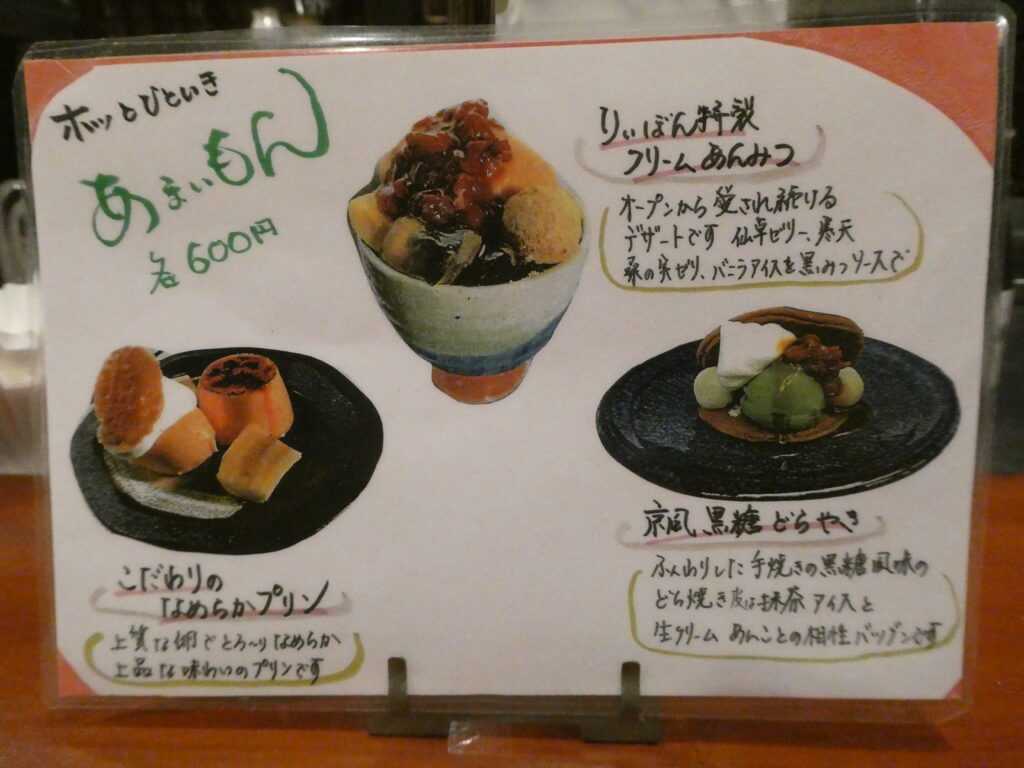 ホッとひといき
あまいもん
各600円
りぃぼん特製
クリームあんみつ
オープンから愛され続ける
デザートです 仙草ゼリー、寒天
桑の実ゼリ、バニラアイスを黒みつソースで
京風 黒糖どらやき
ふんわりした手焼きの黒糖風味の
どら焼き皮は抹茶アイスと
生クリーム あんことの相性バツグンです
こだわりの
なめらかプリン
上質な卵でとろ〜りなめらか
上品な味わいのプリンです